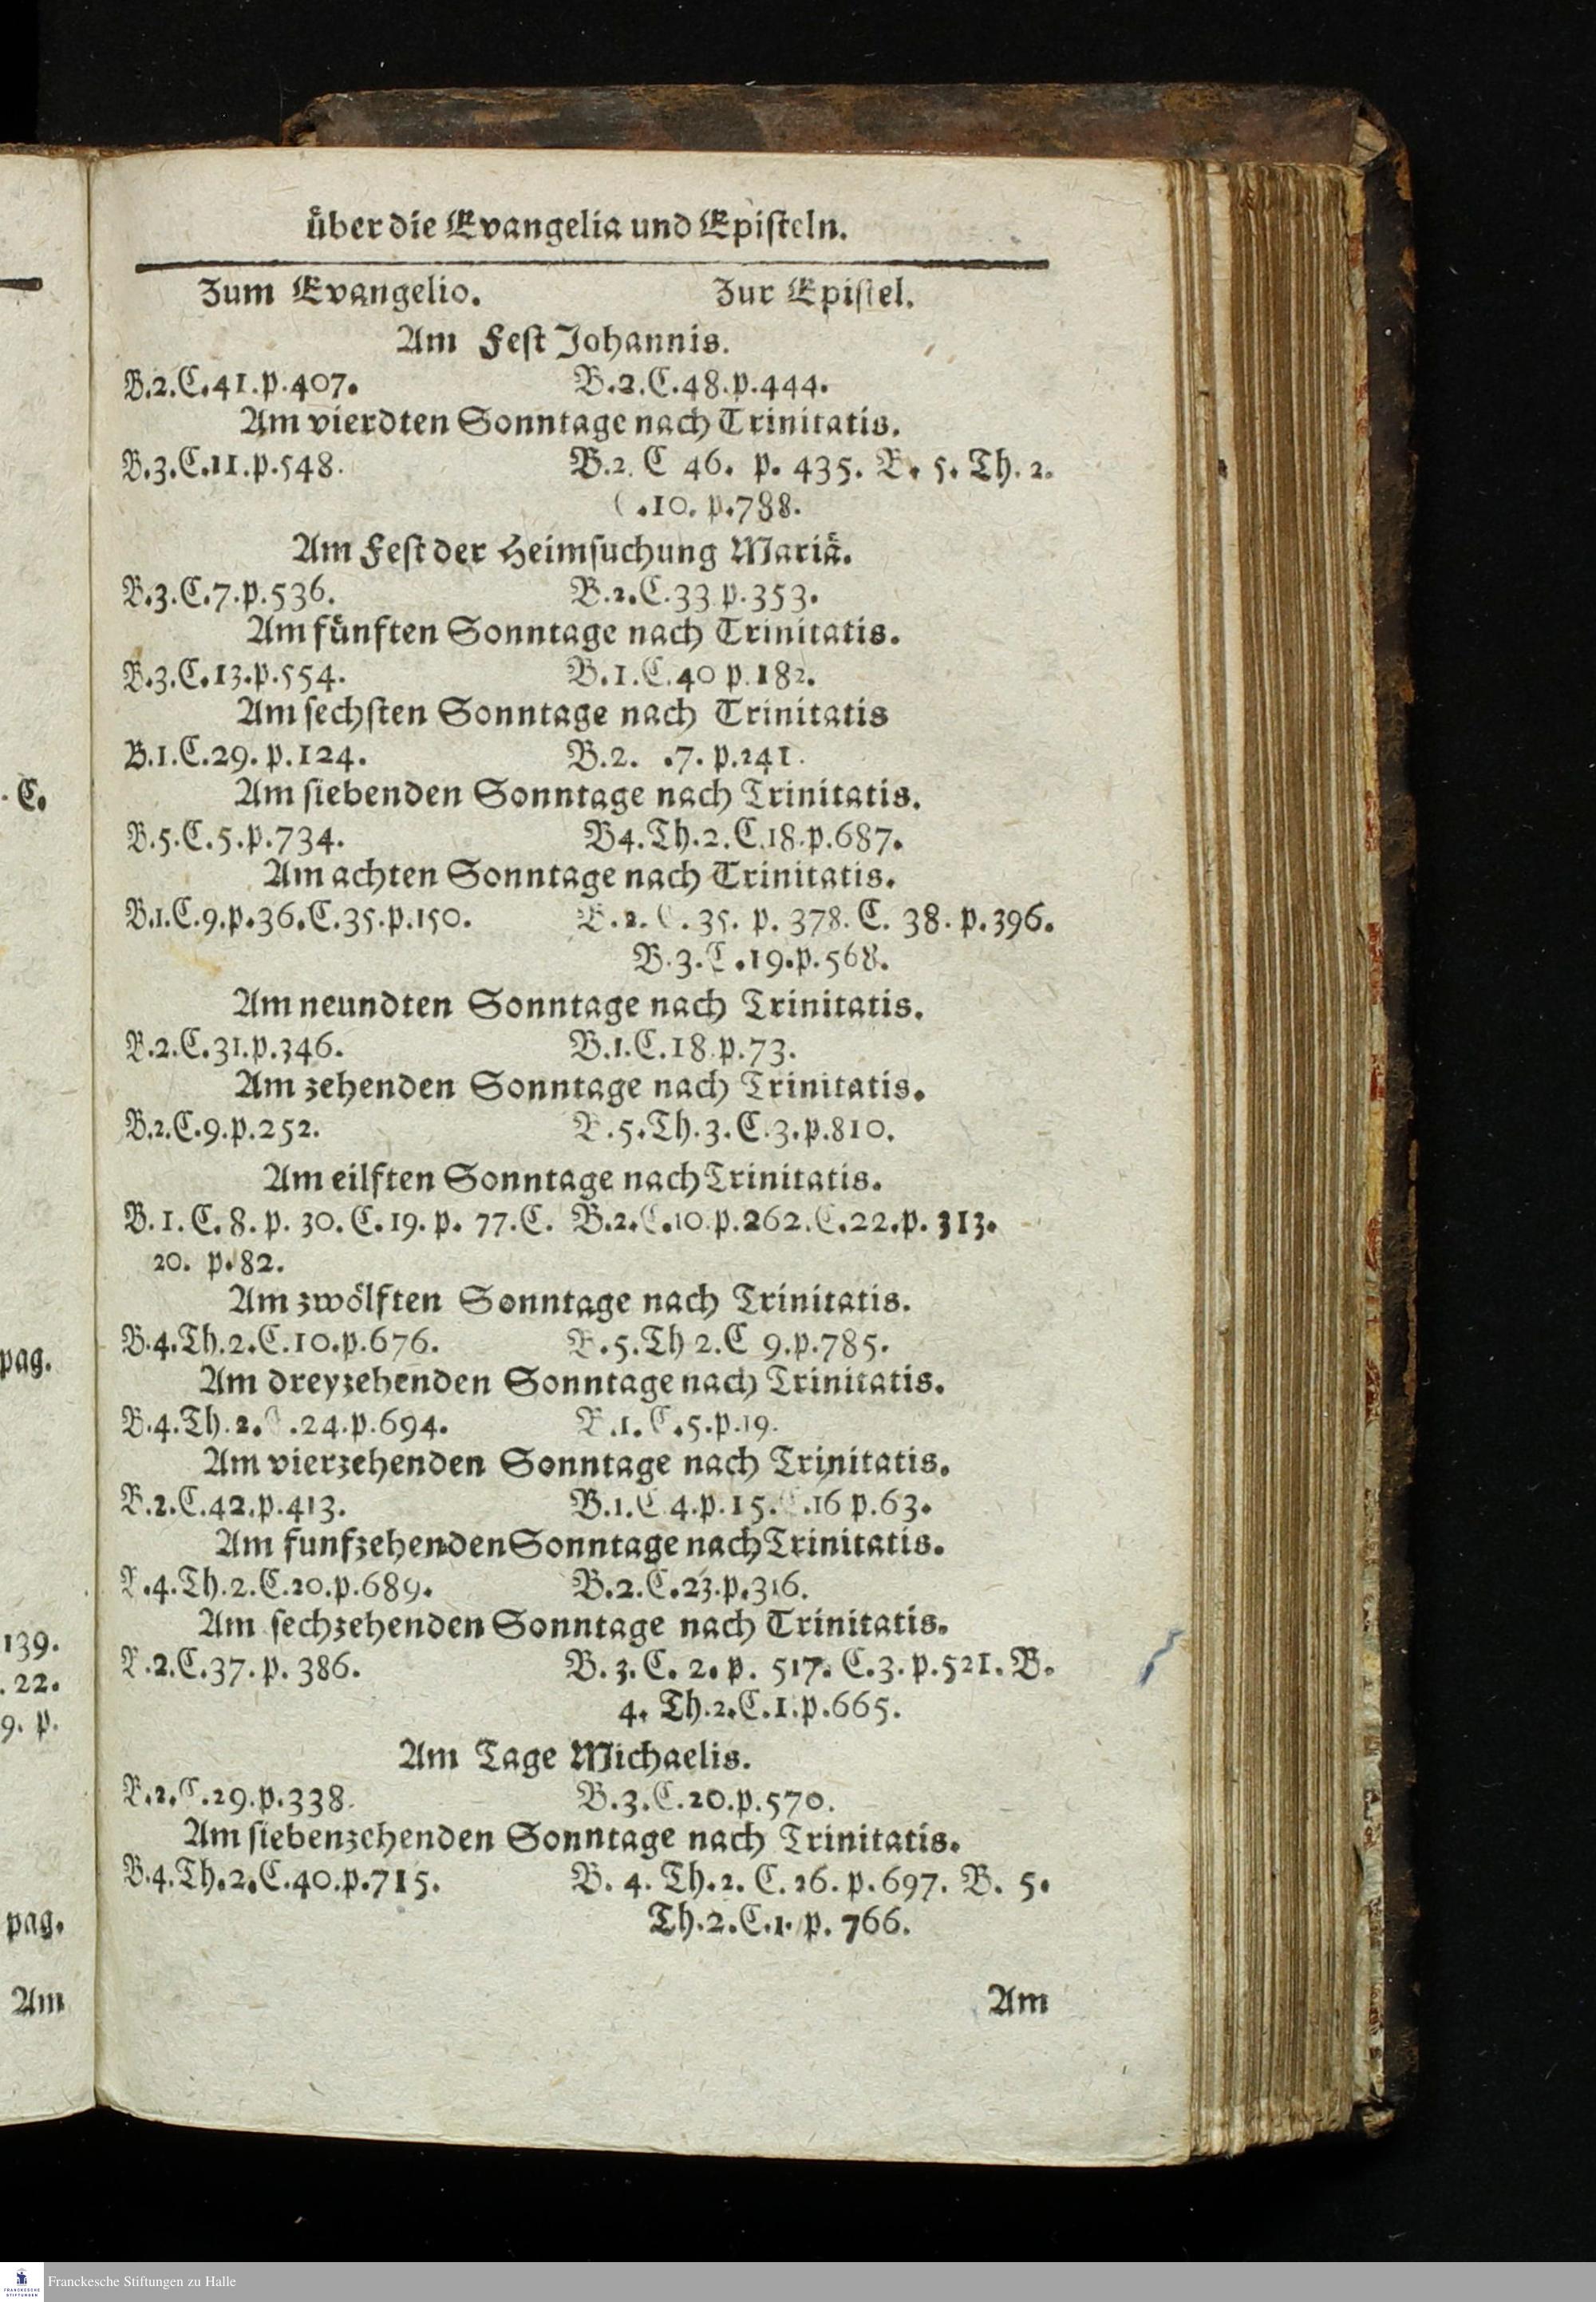 über die Evangelia und Episteln.
Zum Evangelio. Zur Epistel.
Am Fest Johannis.
B.2.C.41.p.407. B.2.C.48.p.444.
Am vierdten Sonntage nach Trinitatis.
B.3.C.11.p.548. B.2. C 46. p. 435. B. 5. Th. 2.
C.10. p.788.
Am Fest der Heimsuchung Mariä.
B.3.C.7.p.536. B.2.C.33 p.353.
Am fünften Sonntage nach Trinitatis.
B.3.C.13.p.554. B.1.C.40 p.182.
Am sechsten Sonntage nach Trinitatis
B.1.C.29. p.124. B.2. .7. p.241.
Am siebenden Sonntage nach Trinitatis.
B.5.C.5.p.734. B4.Th.2.C.18.p.687.
Am achten Sonntage nach Trinitatis.
B.1.C.9.p.36.C.35.p.150. B.2. C. 35. p. 378. C. 38. p.396.
B.3.C.19.p.568.
Am neundten Sonntage nach Trinitatis.
B.2.C.31.p.346. B.1.C.18.p.73.
Am zehenden Sonntage nach Trinitatis.
B.2.C.9.p.252. B.5.Th.3.C.3.p.810.
Am eilften Sonntage nach Trinitatis.
B. 1. C. 8. p. 30. C. 19. p. 77. C. B.2.C.10.p.262.C.22.p. 313.
20. p.82.
Am zwölften Sonntage nach Trinitatis.
B.4.Th.2.C.10.p.676. B.5.Th 2.C 9.p.785.
Am dreyzehenden Sonntage nach Trinitatis.
B.4.Th.2.C.24.p.694. B.1.C.5.p.19.
Am vierzehenden Sonntage nach Trinitatis.
B.2.C.42.p.413. B.1.C 4.p.15.C.16 p.63.
Am funfzehenden Sonntage nach Trinitatis.
B.4.Th.2.C.20.p.689. B.2.C.23.p.316.
Am sechzehenden Sonntage nach Trinitatis.
B.2.C.37. p. 386. B. 3. C. 2. p. 517. C.3. p.521. B.
4. Th.2.C.1.p.665.
Am Tage Michaelis.
B.2.C.29.p.338. B.3.C.20.p.570.
Am siebenzehenden Sonntage nach Trinitatis.
B.4.Th.2.C.40.p.715. B. 4. Th.2. C. 26. p.697. B. 5.
Th.2.C.1. p. 766.
Am
. C.
pag.
139.
. 22.
9. p.
pag.
Am
Franckesche Stiftungen zu Halle